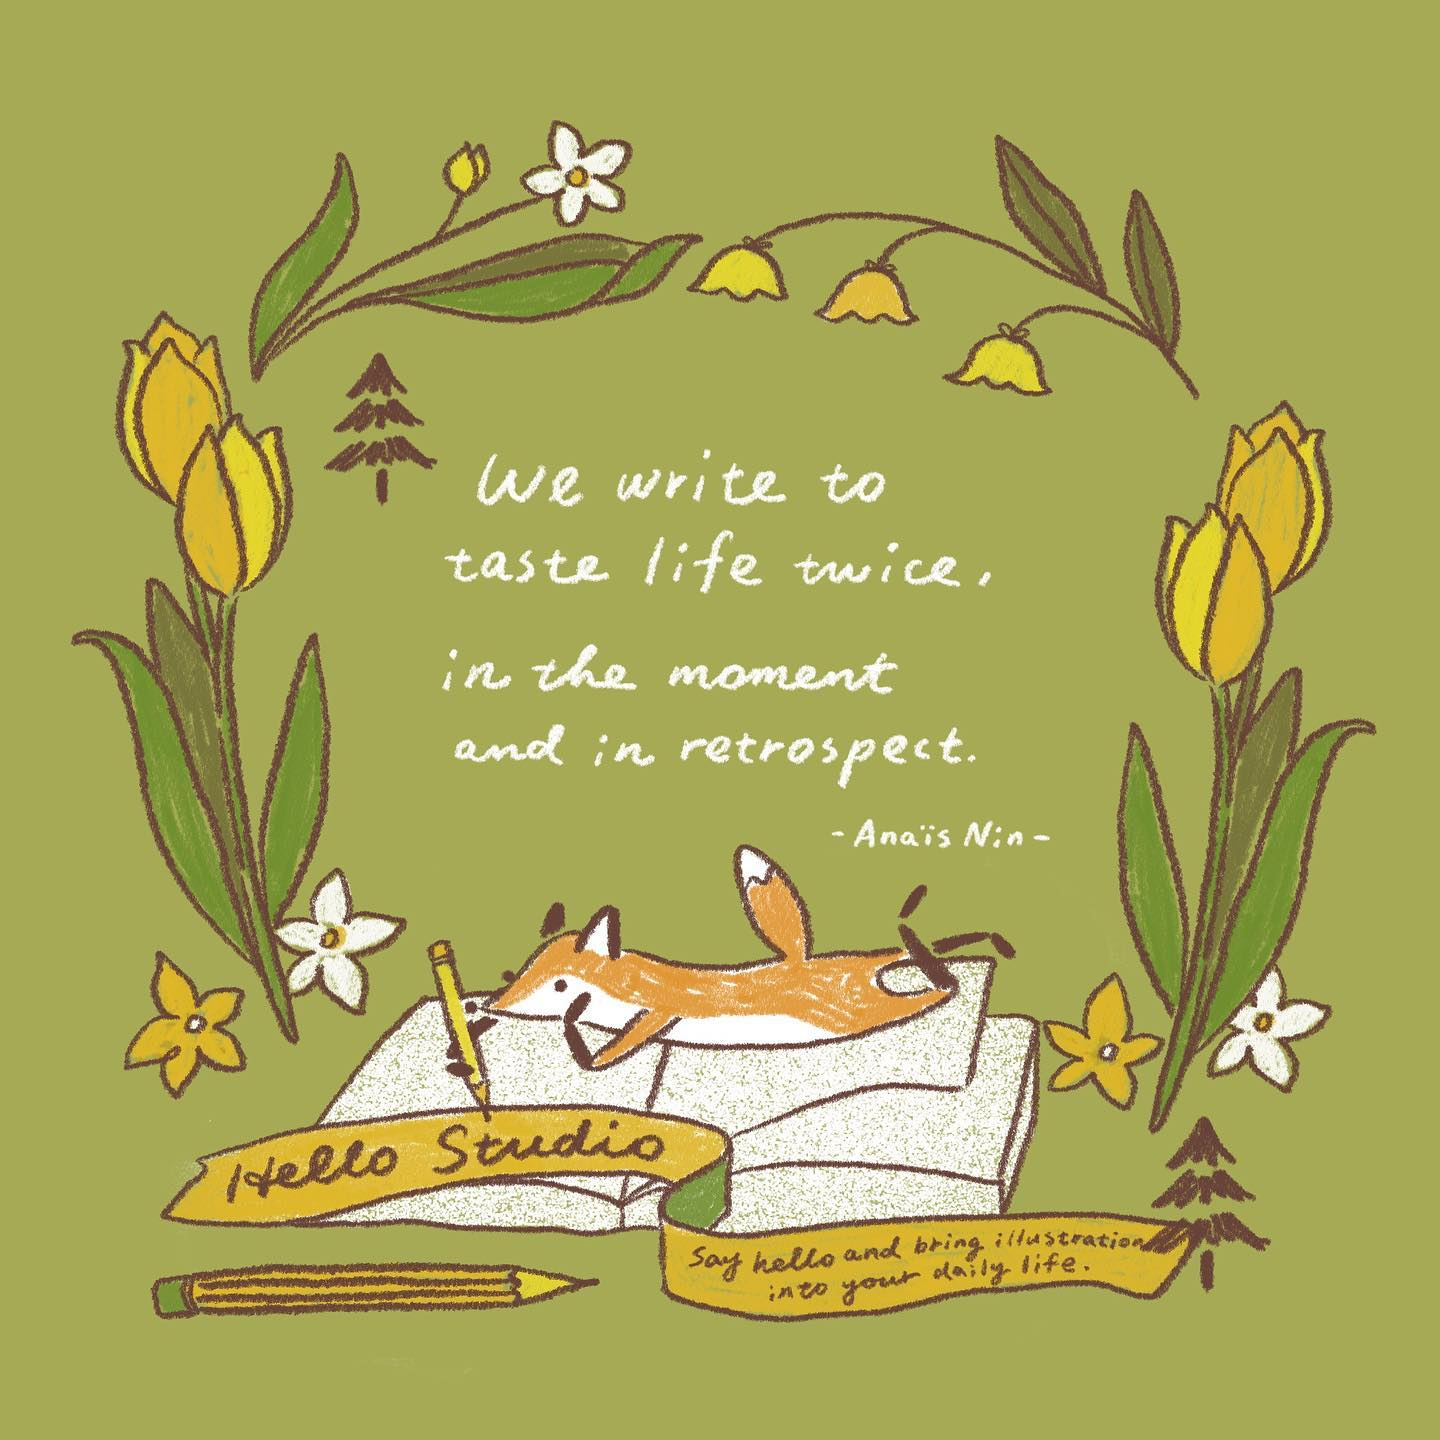 We write to
taste life twice,
in the moment
and in retrospect.
-Anaïs Nin-
Hello Studio
Say hello and bring illustration
into your daily life.